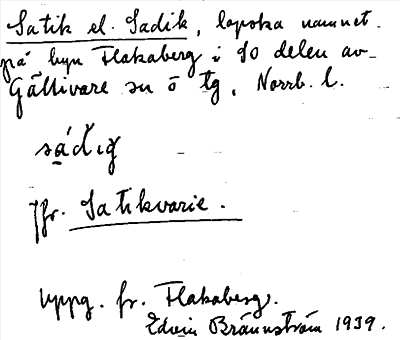 Satik el. Sadik, lapska namnet
på byn Flakaberg i SO delen av
Gällivare sn o tg, Norrb. l.
sádig
Jfr. Satikvarie.
Uppg. fr. Flakaberg.
Edvin Brännström 1939.